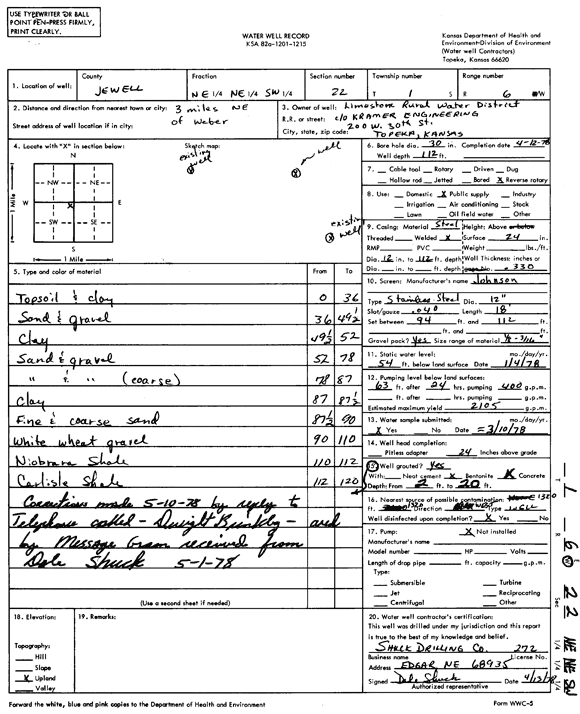 USE TYPEWRITER OR BALL
POINT PEN-PRESS FIRMLY,
PRINT CLEARLY.
WATER WELL RECORD
KSA 82a-1201-1215
Kansas Department of Health and
Environment-Division of Environment
(Water well Contractors)
Topeka, Kansas 66620
1. Location of well: County JEWELL Fraction NE 1/4 NE 1/4 SW 1/4 Section number 22 Township number T 1 S Range number R 6 W
2. Distance and direction from nearest town or city: 3 miles NE
of Weber
Street address of well location if in city:
3. Owner of well: Limestone Rural Water District
R.R. or street: c/o KRAMER ENGINEERING
200 W. 30th St.
City, state, zip code: TOPEKA, KANSAS
4. Locate with "X" in section below:
Sketch map:
N
NW NE
W X E
SW SE
S
1 Mile
1 Mile
existing well
well
existing well
5. Type and color of material From To
Topsoil & clay 0 36
Sand & gravel 36 49½
Clay 49½ 52
Sand & gravel 52 78
" & " (coarse) 78 87
Clay 87 87½
Fine & coarse sand 87½ 90
White wheat gravel 90 110
Niobrara Shale 110 112
Carlisle Shale 112 120
Corrections made 5-10-78 by reply to
Telephone called - Dwight - and
by Message Gram received from
Dale Shuck 5-1-78
(Use a second sheet if needed)
6. Bore hole dia. 30 in. Completion date 4-12-78
Well depth 112 ft.
7. Cable tool Rotary Driven Dug
Hollow rod Jetted Bored X Reverse rotary
8. Use: Domestic X Public supply Industry
Irrigation Air conditioning Stock
Lawn Oil field water Other
9. Casing: Material Steel Height: Above or below
Threaded Welded X Surface 24 in.
RMP PVC Weight lbs./ft.
Dia. 12 in. to 112 ft. depth Wall Thickness: inches or
Dia. in. to ft. depth gauge No. .330
10. Screen: Manufacturer's name Johnson
Type Stainless Steel Dia. 12"
Slot/gauze .040 Length 18'
Set between 94 ft. and 112 ft.
ft. and ft.
Gravel pack? yes Size range of material 1/8 - 3/16"
11. Static water level: mo./day/yr.
54 ft. below land surface Date 1/4/78
12. Pumping level below land surfaces:
63 ft. after 24 hrs. pumping 400 g.p.m.
ft. after hrs. pumping g.p.m.
Estimated maximum yield 2105 g.p.m.
13. Water sample submitted: mo./day/yr.
X Yes No Date 3/10/78
14. Well head completion:
Pitless adapter 24 Inches above grade
15. Well grouted? yes
With: Neat cement X Bentonite X Concrete
Depth: From 2 ft. to 20 ft.
16. Nearest source of possible contamination: 1320
ft. Direction Type
Well disinfected upon completion? X Yes No
17. Pump: X Not installed
Manufacturer's name
Model number HP Volts
Length of drop pipe ft. capacity g.p.m.
Type:
Submersible Turbine
Jet Reciprocating
Centrifugal Other
18. Elevation:
19. Remarks:
Topography:
Hill
Slope
X Upland
Valley
20. Water well contractor's certification:
This well was drilled under my jurisdiction and this report
is true to the best of my knowledge and belief.
SHUCK DRILLING Co. 272
Business name License No.
Address EDGAR NE 68935
Signed Dale Shuck Date 4/13/78
Authorized representative
T 1
R 6 W
Sec 22
1/4 1/4 1/4 NE NE SW
Forward the white, blue and pink copies to the Department of Health and Environment
Form WWC-5